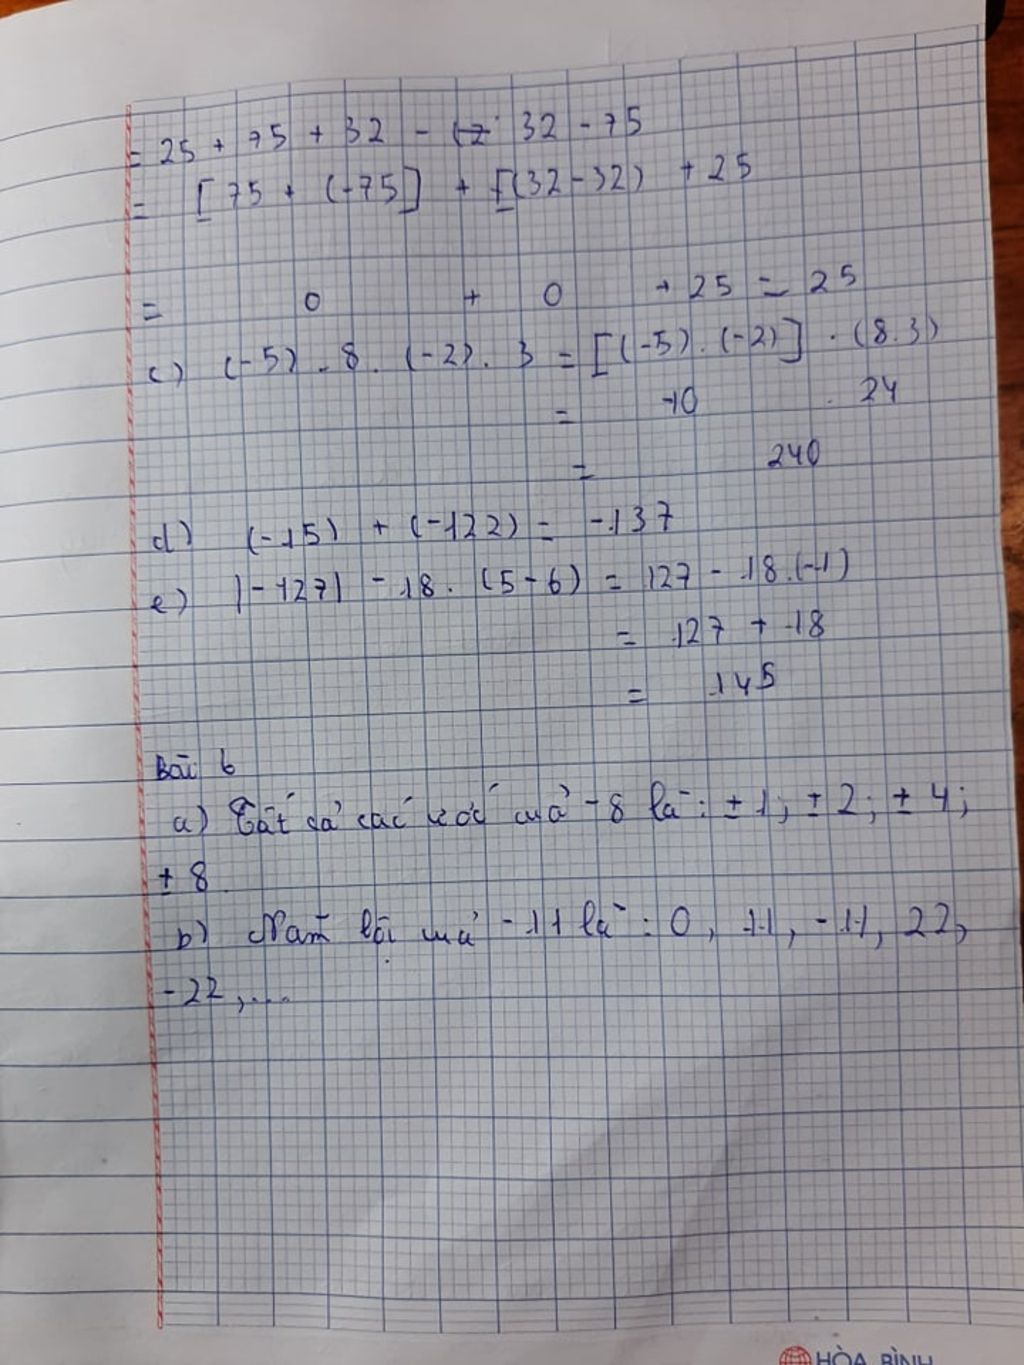 = 25 + 75 + 32 - 32 - 75
= [75 + (-75] + [(32-32) + 25
= 0 + 0 + 25 = 25
c) (-5) . 8 . (-2) . 3 = [(-5) . (-2)] . (8.3)
= 10 . 24
= 240
d) (-15) + (-122) = -137
e) |-127| - 18 . (5-6) = 127 - 18.(-1)
= 127 + 18
= 145
Bài 6
a) Tất cả các ước của -8 là: ±1; ±2; ±4;
±8
b) Năm bội của -11 là: 0, 11, -11, 22,
-22,...
HÒA BÌNH